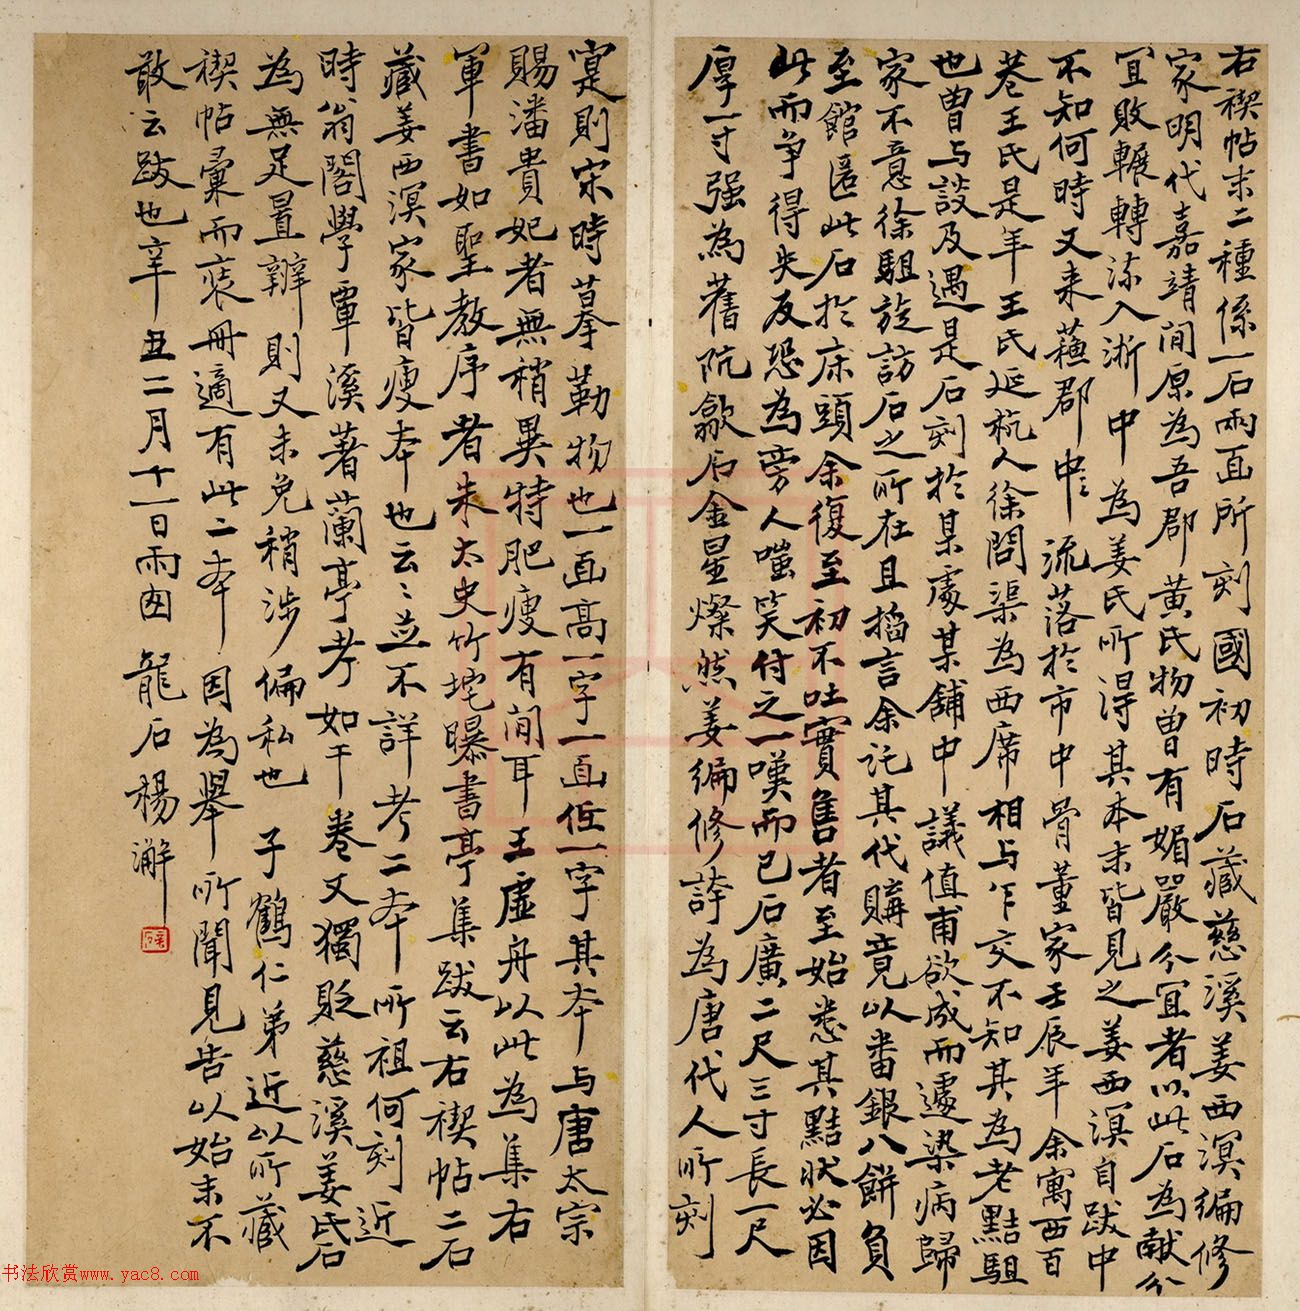 右禊帖末二種係一石兩面所刻國初時石藏慈溪姜西溟編修
家明代嘉靖間原為吾郡黃氏物曾有媚嚴分宜者以此石為獻分
宜敗輾轉流入浙中為姜氏所得其本末皆見之姜西溟自跋中
不知何時又來蘇郡中流落於市中骨董家壬辰年余寓西百
花巷王氏是年王氏延杭人徐問渠為西席相与乍交不知其為老黠駔
也曾与談及遇是石刻於某處某舖中議值甫欲成而遽染病歸
家不意徐駔旋訪石之所在且搯言余託其代購竟以番銀八餅負
至館匿此石於床頭余復至初不吐實售者至始悉其黠狀必因
此而爭得失反恐為旁人嗤笑付之一嘆而已石廣二尺三寸長一尺
厚一寸强為舊阬歙石金星燦然姜編修誇為唐代人所刻
寔則宋時摹勒物也一面高一字一面低一字其本与唐太宗
賜潘貴妃者無稍異特肥瘦有間耳王虛舟以此為集右
軍書如聖教序者朱太史竹垞曝書亭集跋云右禊帖二石
藏姜西溟家皆瘦本也云〻並不詳考二本所祖何刻近
時翁閣學覃溪著蘭亭考如干卷又獨貶慈溪姜氏石
為無足置辨則又未免稍涉偏私也子鶴仁弟近以所藏
禊帖彙而裘冊適有此二本因為舉所聞見告以始末不
敢云跋也辛丑二月十一日雨囱龍石楊澥
书法欣赏www.yac8.com